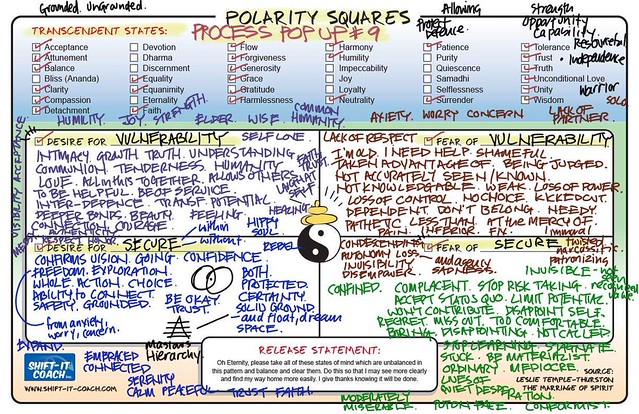 Grounded. Ungrounded.
POLARITY SQUARES
Allowing
Strength
Project
Defence.
Opportunity
Capability.
Resourceful
Independence
Warrior
SOLO
TRANSCENDENT STATES:
PROCESS POP UP #9
Acceptance
Attunement
Balance
Bliss (Ananda)
Clarity
Compassion
Detachment
Devotion
Dharma
Discernment
Equality
Equanimity
Eternality
Faith
Flow
Forgiveness
Generosity
Grace
Gratitude
Harmlessness
Harmony
Humility
Impeccability
Joy
Loyalty
Neutrality
Patience
Purity
Quiescence
Samadhi
Selflessness
Surrender
Tolerance
Trust
Truth
Unconditional Love
Unity
Wisdom
HUMILITY. JOY. STRENGTH. ELDER. WISE. COMMON HUMANITY.
AXIETY. WORRY CONCERN LACK OF PARTNER.
VISIBILITY ACCEPTANCE
DESIRE FOR VULNERABILITY SELF LOVE.
INTIMACY. GROWTH TRUTH. UNDERSTANDING
COMMUNION. TENDERNESS. HUMANITY
LOVE. ALL IN THIS TOGETHER. ALLOWS OTHERS
TO BE HELPFUL. BE OF SERVICE.
INTERDEPENDENCE TRANSF. POTENTIAL
DEEPER BONDS. BEAUTY. FEELING.
CONNECTION. COURAGE.
AUTHENTICITY
RESPECT HONOR.
FAITH
TRUST.
HEALING
LACK OF RESPECT
FEAR OF VULNERABILITY
I'M OLD. I NEED HELP. SHAMEFUL.
TAKEN ADVANTAGE OF. BEING JUDGED.
NOT ACCURATELY SEEN/KNOWN.
NOT KNOWLEDGABLE. WEAK. LOSS OF POWER.
LOSS OF CONTROL. NO CHOICE. KICKED OUT.
DEPENDENT. DON'T BELONG. NEEDY.
PATHETIC LESS THAN. AT THE MERCY OF
PAIN. INFERIOR.
DESIRE FOR SECURE
within
without.
HIPPY
SOUL
REBEL
CONFIRMS VISION. GOING. CONFIDENCE.
FREEDOM. EXPLORATION.
WHOLE. ACTION. CHOICE.
ABILITY TO CONNECT.
SAFETY. GROUNDED.
BOTH.
PROTECTED.
CERTAINTY.
SOLID GROUND
and float, dream
SPACE.
BE OKAY.
TRUST.
from anxiety,
worry, concern.
Maslow's
Hierarchy.
EXPAND.
EMBRACED
CONNECTED
SERENITY
CALM PEACEFUL TRUST FAITH.
CONDESCENDING
AUTONOMY LOSS
INVISIBILITY
DISEMPOWER.
FEAR OF SECURE
twisted
narcissistic
patronizing
and agony
SADNESS.
INVISIBLE - not seen
CONFINED. COMPLACENT. STOP RISK TAKING.
ACCEPT STATUS QUO. LIMIT POTENTIAL
WON'T CONTRIBUTE. DISAPPOINT SELF.
REGRET. MISS OUT. TOO COMFORTABLE
BORING. DISAPPOINTING. NOT CALLED
STOP LEARNING. STAGNATE.
STUCK. BE MATERIALIST.
ORDINARY. MEDIOCRE.
LIVES OF
QUIET DESPERATION.
MODERATELY
MISERABLE. CONFORMIST.
RELEASE STATEMENT:
Oh Eternity, please take all of these states of mind which are unbalanced in
this pattern and balance and clear them. Do this so that I may see more clearly
and find my way home more easily. I give thanks knowing it will be done.
SHIFT-IT
COACH INC.
WWW.SHIFT-IT-COACH.COM
SOURCE:
LESLIE TEMPLE-THURSTON
THE MARRIAGE OF SPIRIT